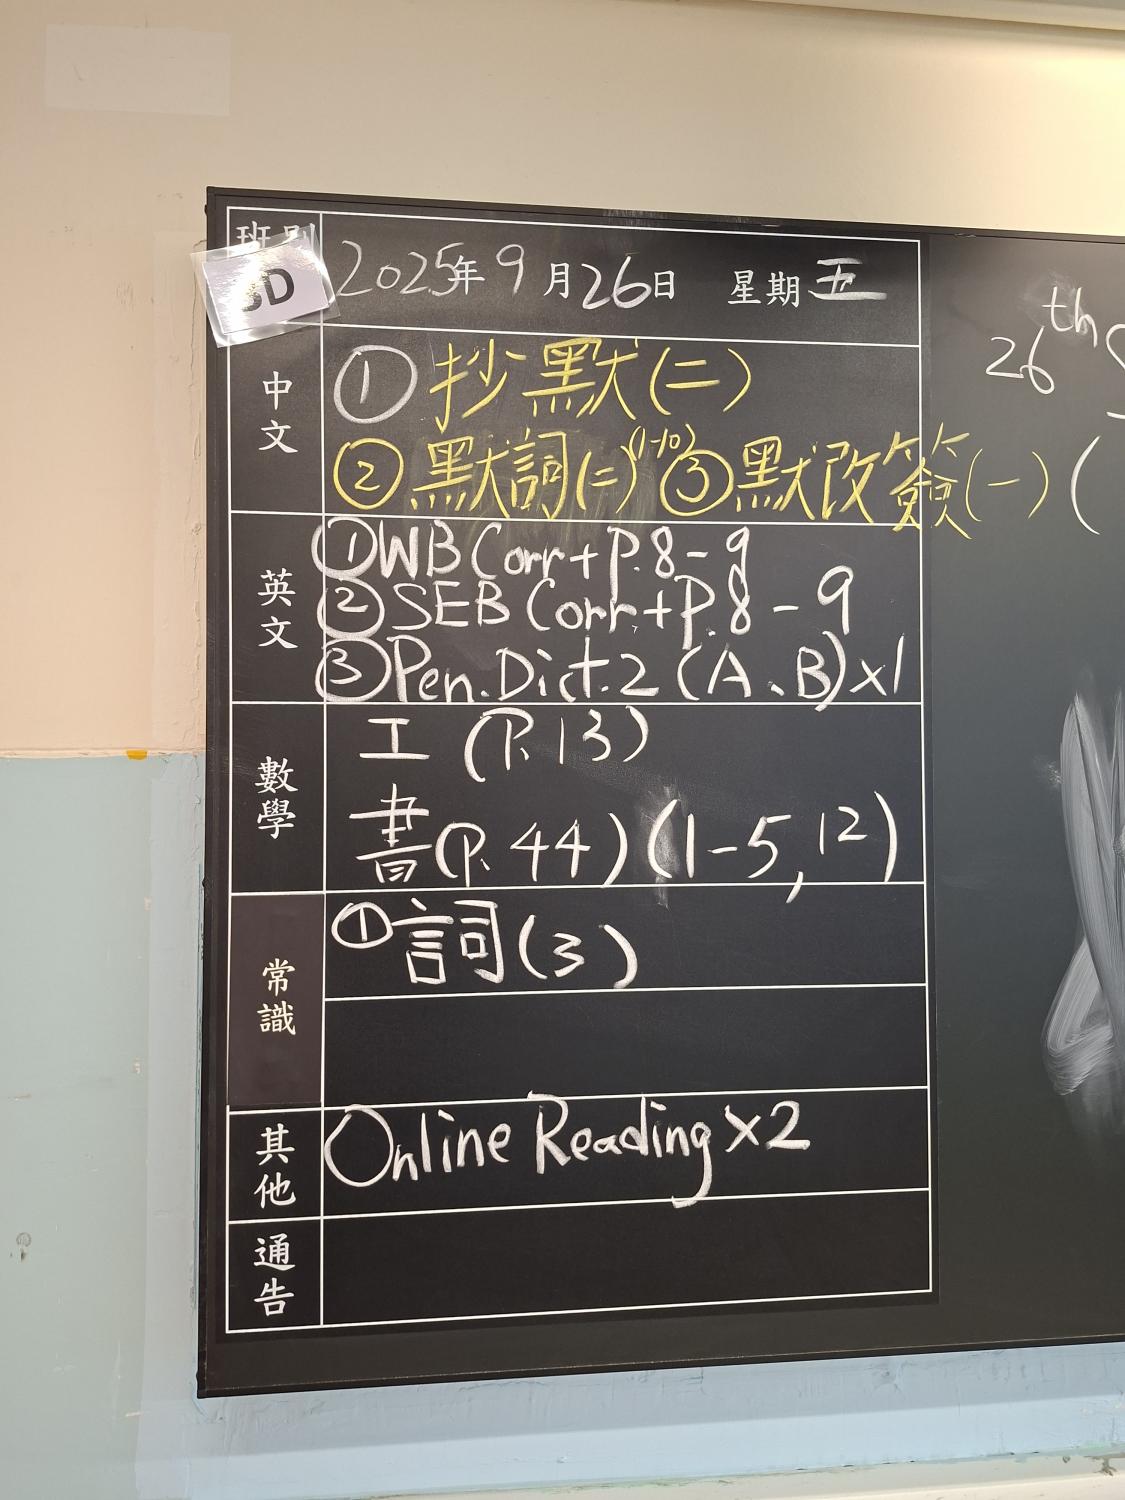 班別
2025年9月26日 星期五
中文
①抄默(二)
②默詞(二)(1-10)③默改簽(一)(
英文
①WB Corr+P.8-9
②SEB Corr.+P.8-9
③Pen.Dict.2 (A、B)x1
數學
工 (P.13)
書(P.44)(1-5,12)
常識
①詞(3)
其他
Online Reading x2
通告
26th S